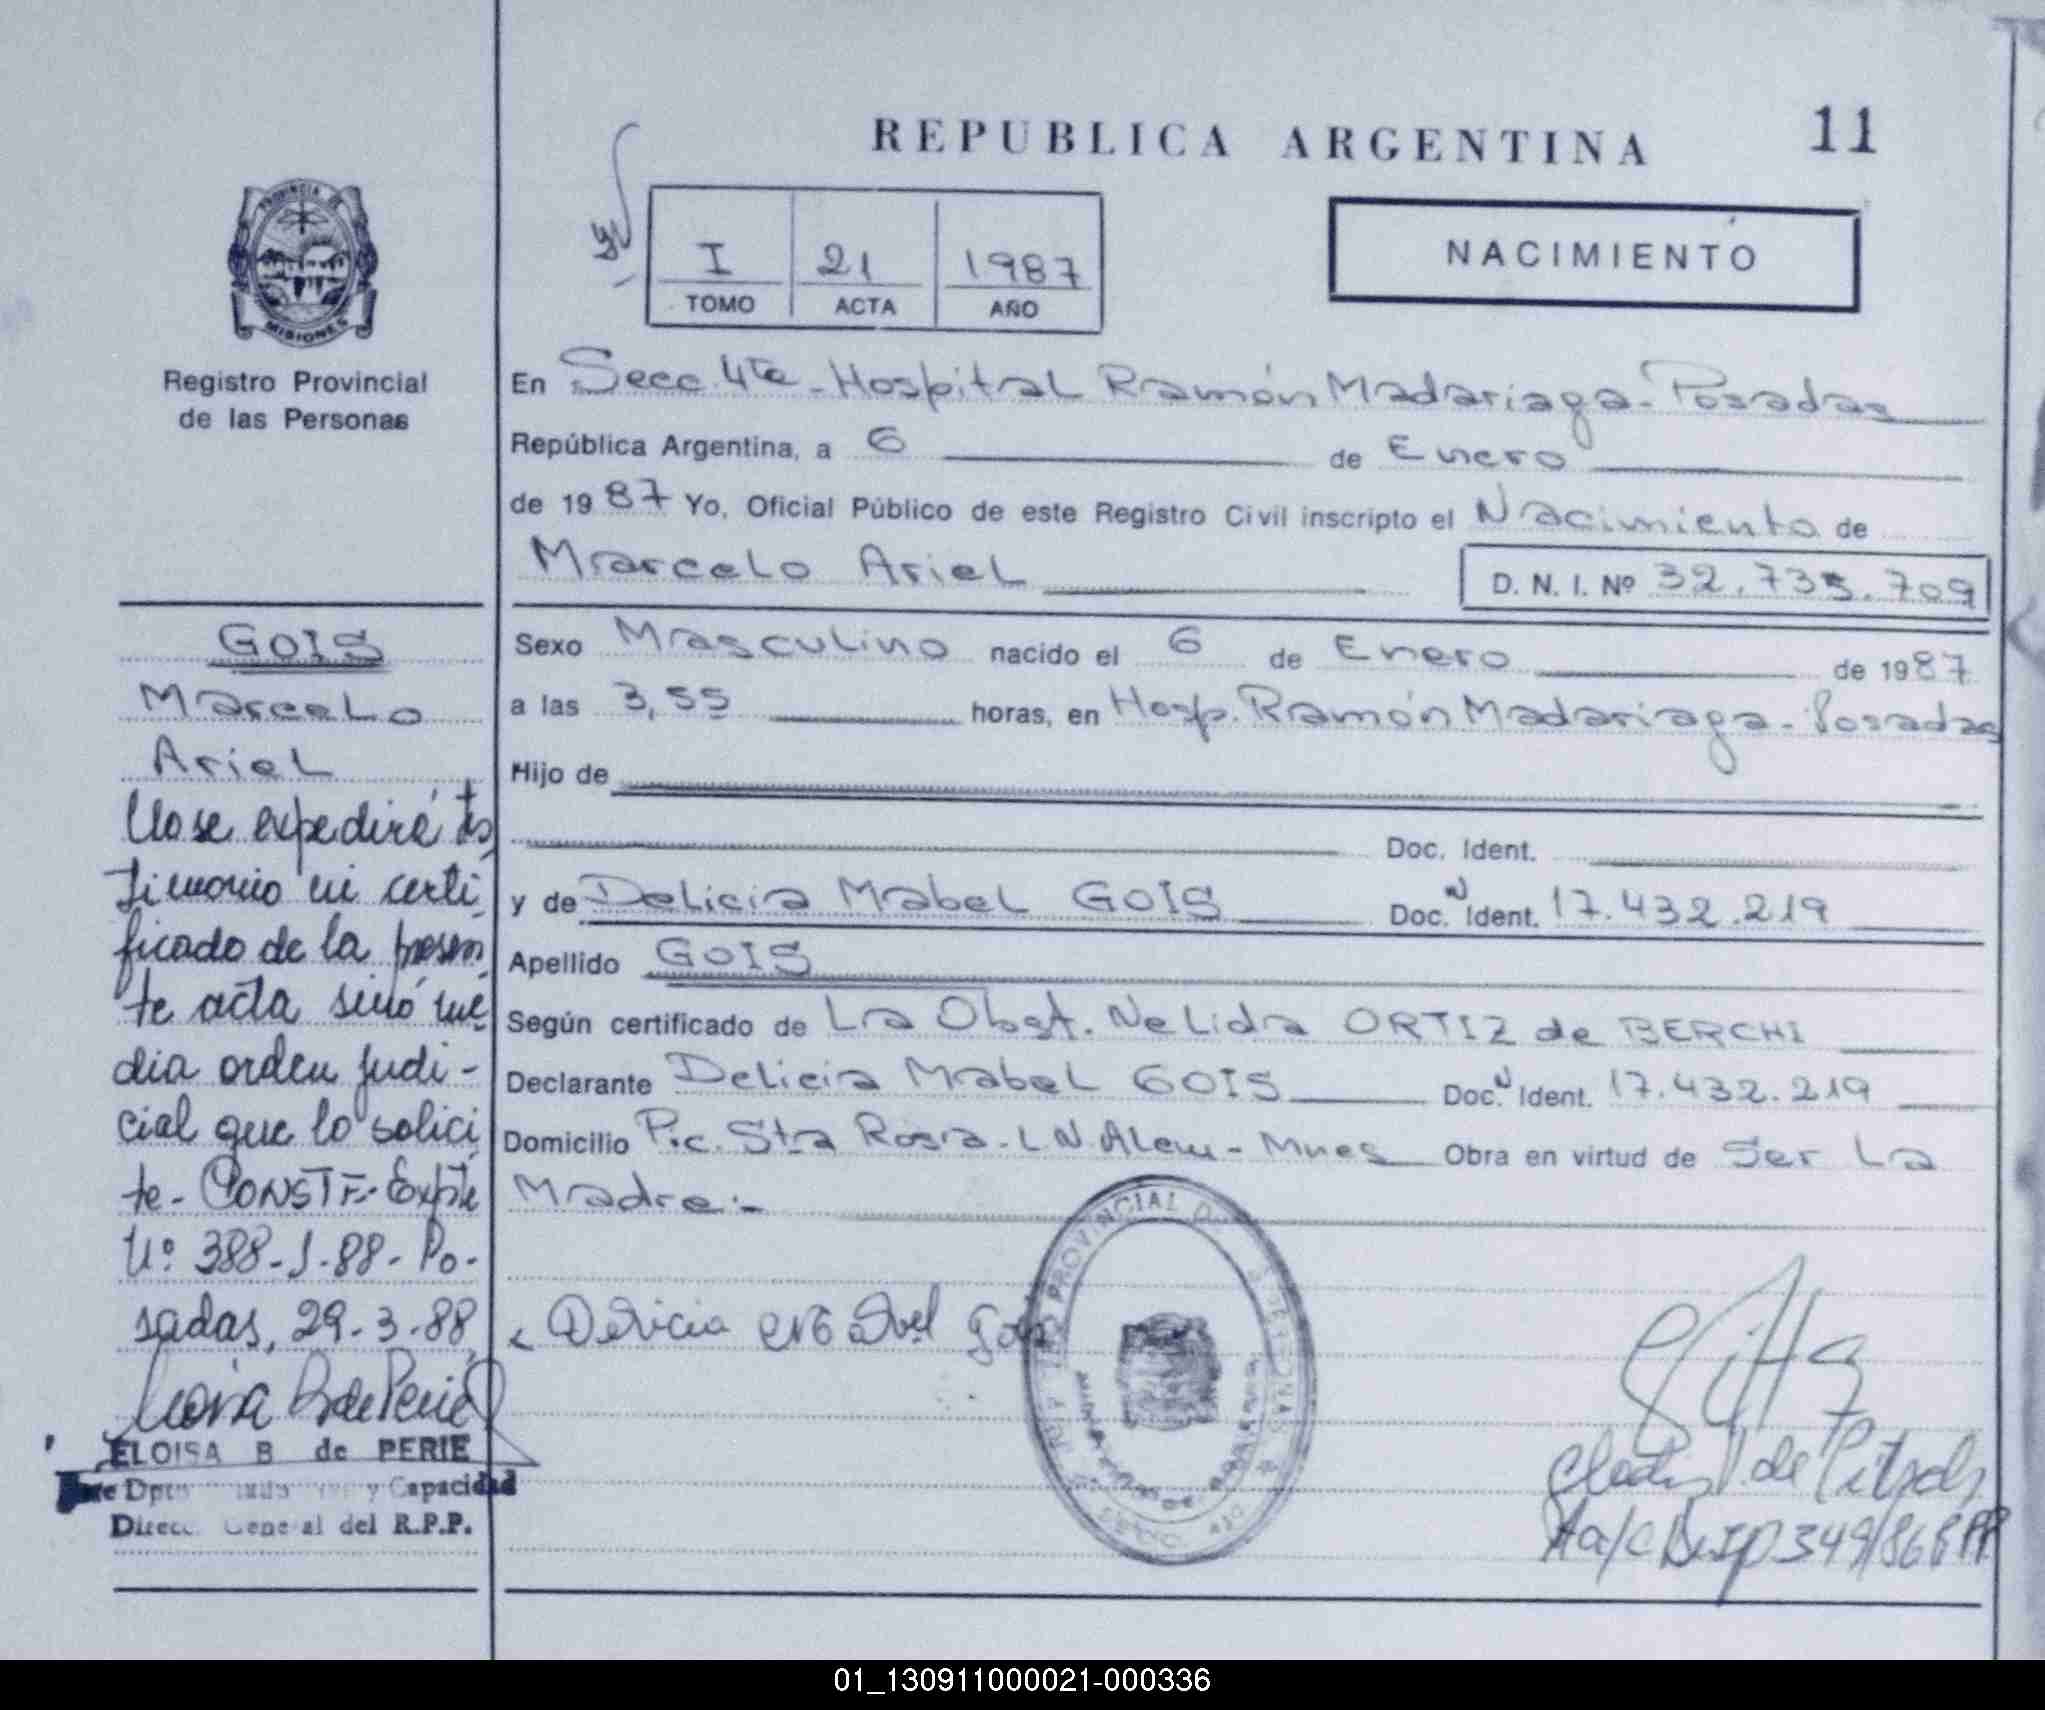 REPUBLICA ARGENTINA 11
I 21 1987
TOMO ACTA AÑO
NACIMIENTO
PROVINCIA DE
MISIONES
Registro Provincial
de las Personas
En Secc. 4ta - Hospital Ramón Madariaga - Posadas
República Argentina, a 6 de Enero
de 1987 Yo, Oficial Público de este Registro Civil inscripto el Nacimiento de
Marcelo Ariel D. N. I. Nº 32.735.709
Sexo Masculino nacido el 6 de Enero de 1987
a las 3,55 horas, en Hosp. Ramón Madariaga - Posadas
Hijo de
Doc. Ident.
y de Delicia Mabel GOIS Doc. N Ident. 17.432.219
Apellido GOIS
Según certificado de La Obst. Nelida ORTIZ de BERCHI
Declarante Delicia Mabel GOIS Doc. N Ident. 17.432.219
Domicilio Pic. Sta Rosa - L N. Alem - Mnes Obra en virtud de Ser La
Madre.-
Delicia Gois
GOIS
Marcelo
Ariel
No se expedirá tes
timonio ni certi
ficado de la presen
te acta sinó me
dia orden judi -
cial que lo solici
te - CONSTE - Expte
Nº 388-J-88 - Po -
sadas, 29-3-88
ELOISA B de PERIE
Dpto y Capacidad
Direcc. General del R.P.P.
de
349/86 RPP
01_130911000021-000336